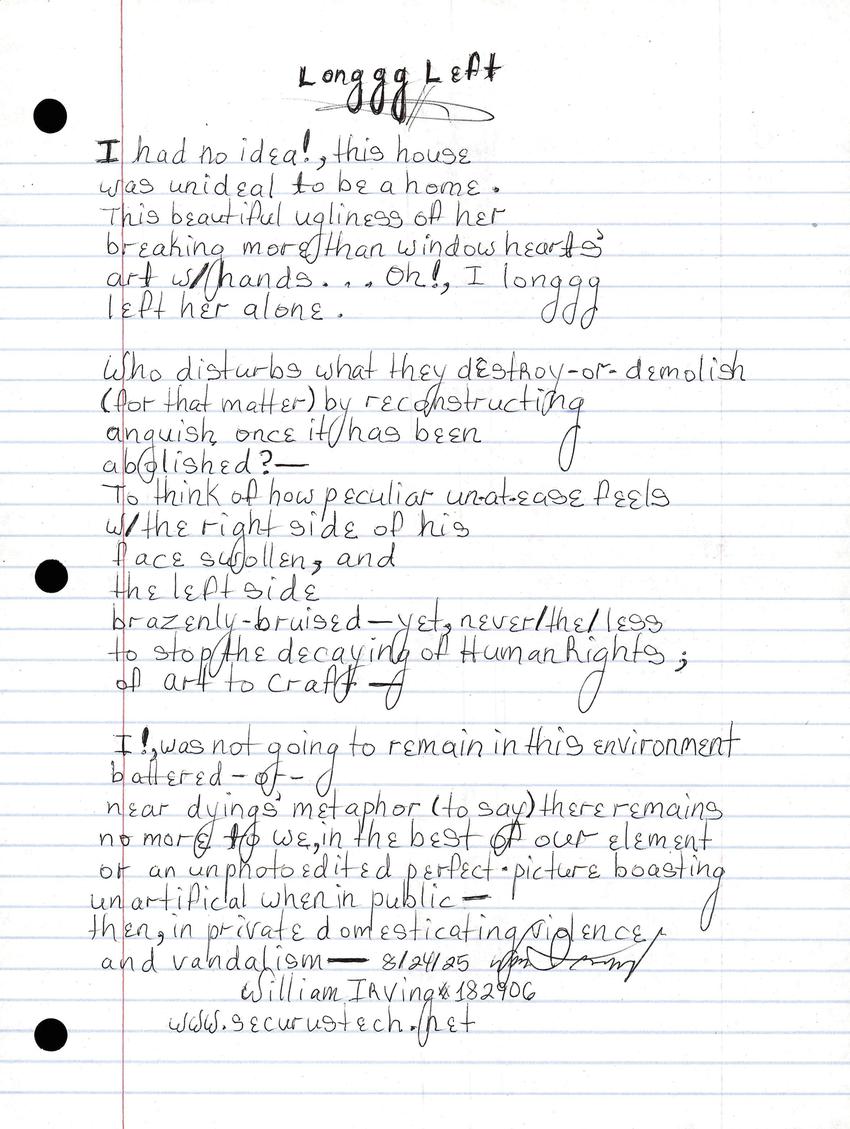 Longgg Left
I had no idea!, this house
was unideal to be a home.
This beautiful ugliness of her
breaking more/than window hearts'
art w/hands... Oh!, I longgg
left her alone.
Who disturbs what they destroy-or-demolish
(for that matter) by reconstructing
anguish, once it/has been
abolished?—
To think of how peculiar un-at-ease feels
w/the right side of his
face swollen, and
the left side
brazenly-bruised—yet, never/the/less
to stop/the decaying of Human Rights;
of art to craft—
I!, was not going to remain in this environment
battered-of-
near dyings' metaphor (to say) there remains
no more to we, in the best of our element
or an unphotoedited perfect-picture boasting
unartificial when in public—
then, in private domesticating violence,
and vandalism— 8/24/25
William Irving #182906
www.securustech.net